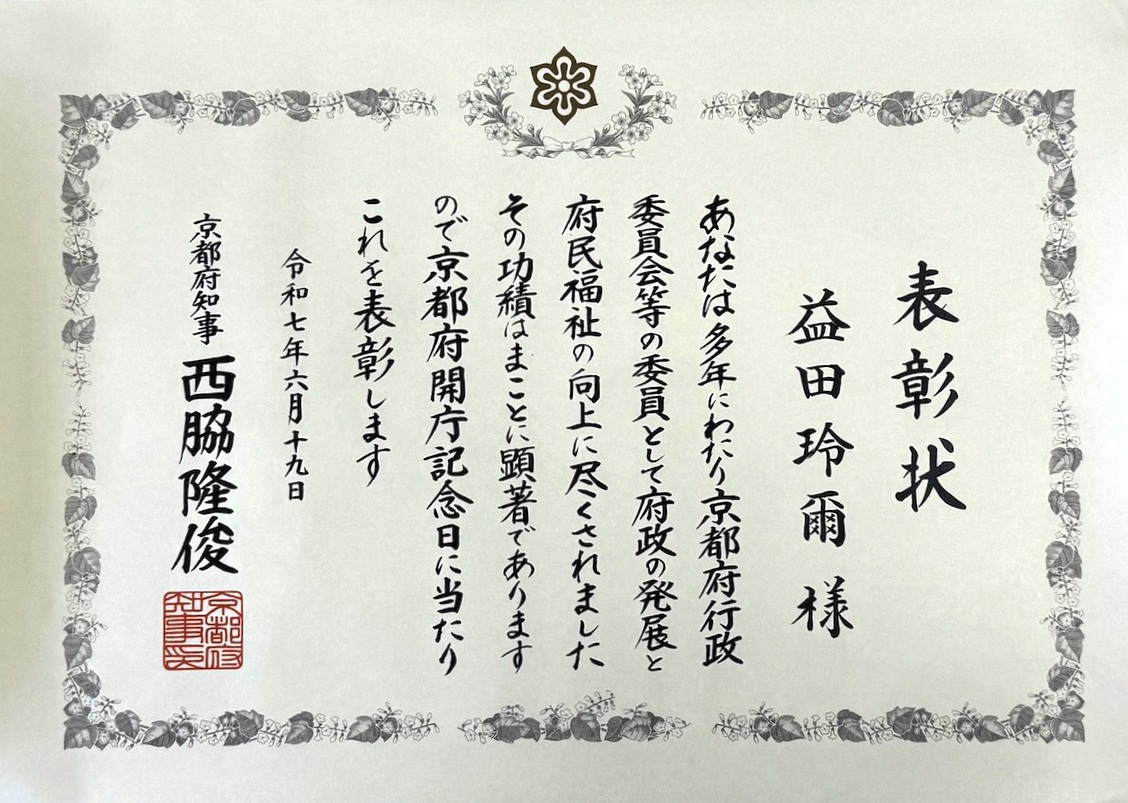 表彰状
益田玲爾 様
あなたは多年にわたり京都府行政
委員会等の委員として府政の発展と
府民福祉の向上に尽くされました
その功績はまことに顕著であります
ので京都府開庁記念日に当たり
これを表彰します
令和七年六月十九日
京都府知事 西脇隆俊
京都府
知事印